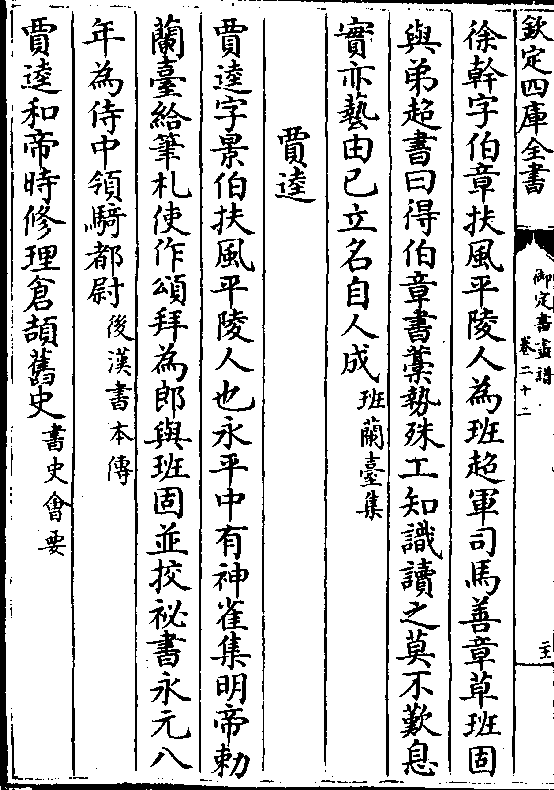 欽定四庫全書
御定書畫譜
卷二十二
徐幹字伯章扶風平陵人為班超軍司馬善章草班固
與弟超書曰得伯章書藳勢殊工知識讀之莫不歎息
實亦藝由已立名自人成班蘭臺集
賈逵
賈逵字景伯扶風平陵人也永平中有神雀集明帝勅
蘭臺給筆札使作頌拜為郎與班固並挍祕書永元八
年為侍中領騎都尉後漢書本傳
賈逵和帝時修理倉頡舊史書史會要